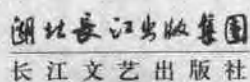 湖北長江出版集團
长江文艺出版社